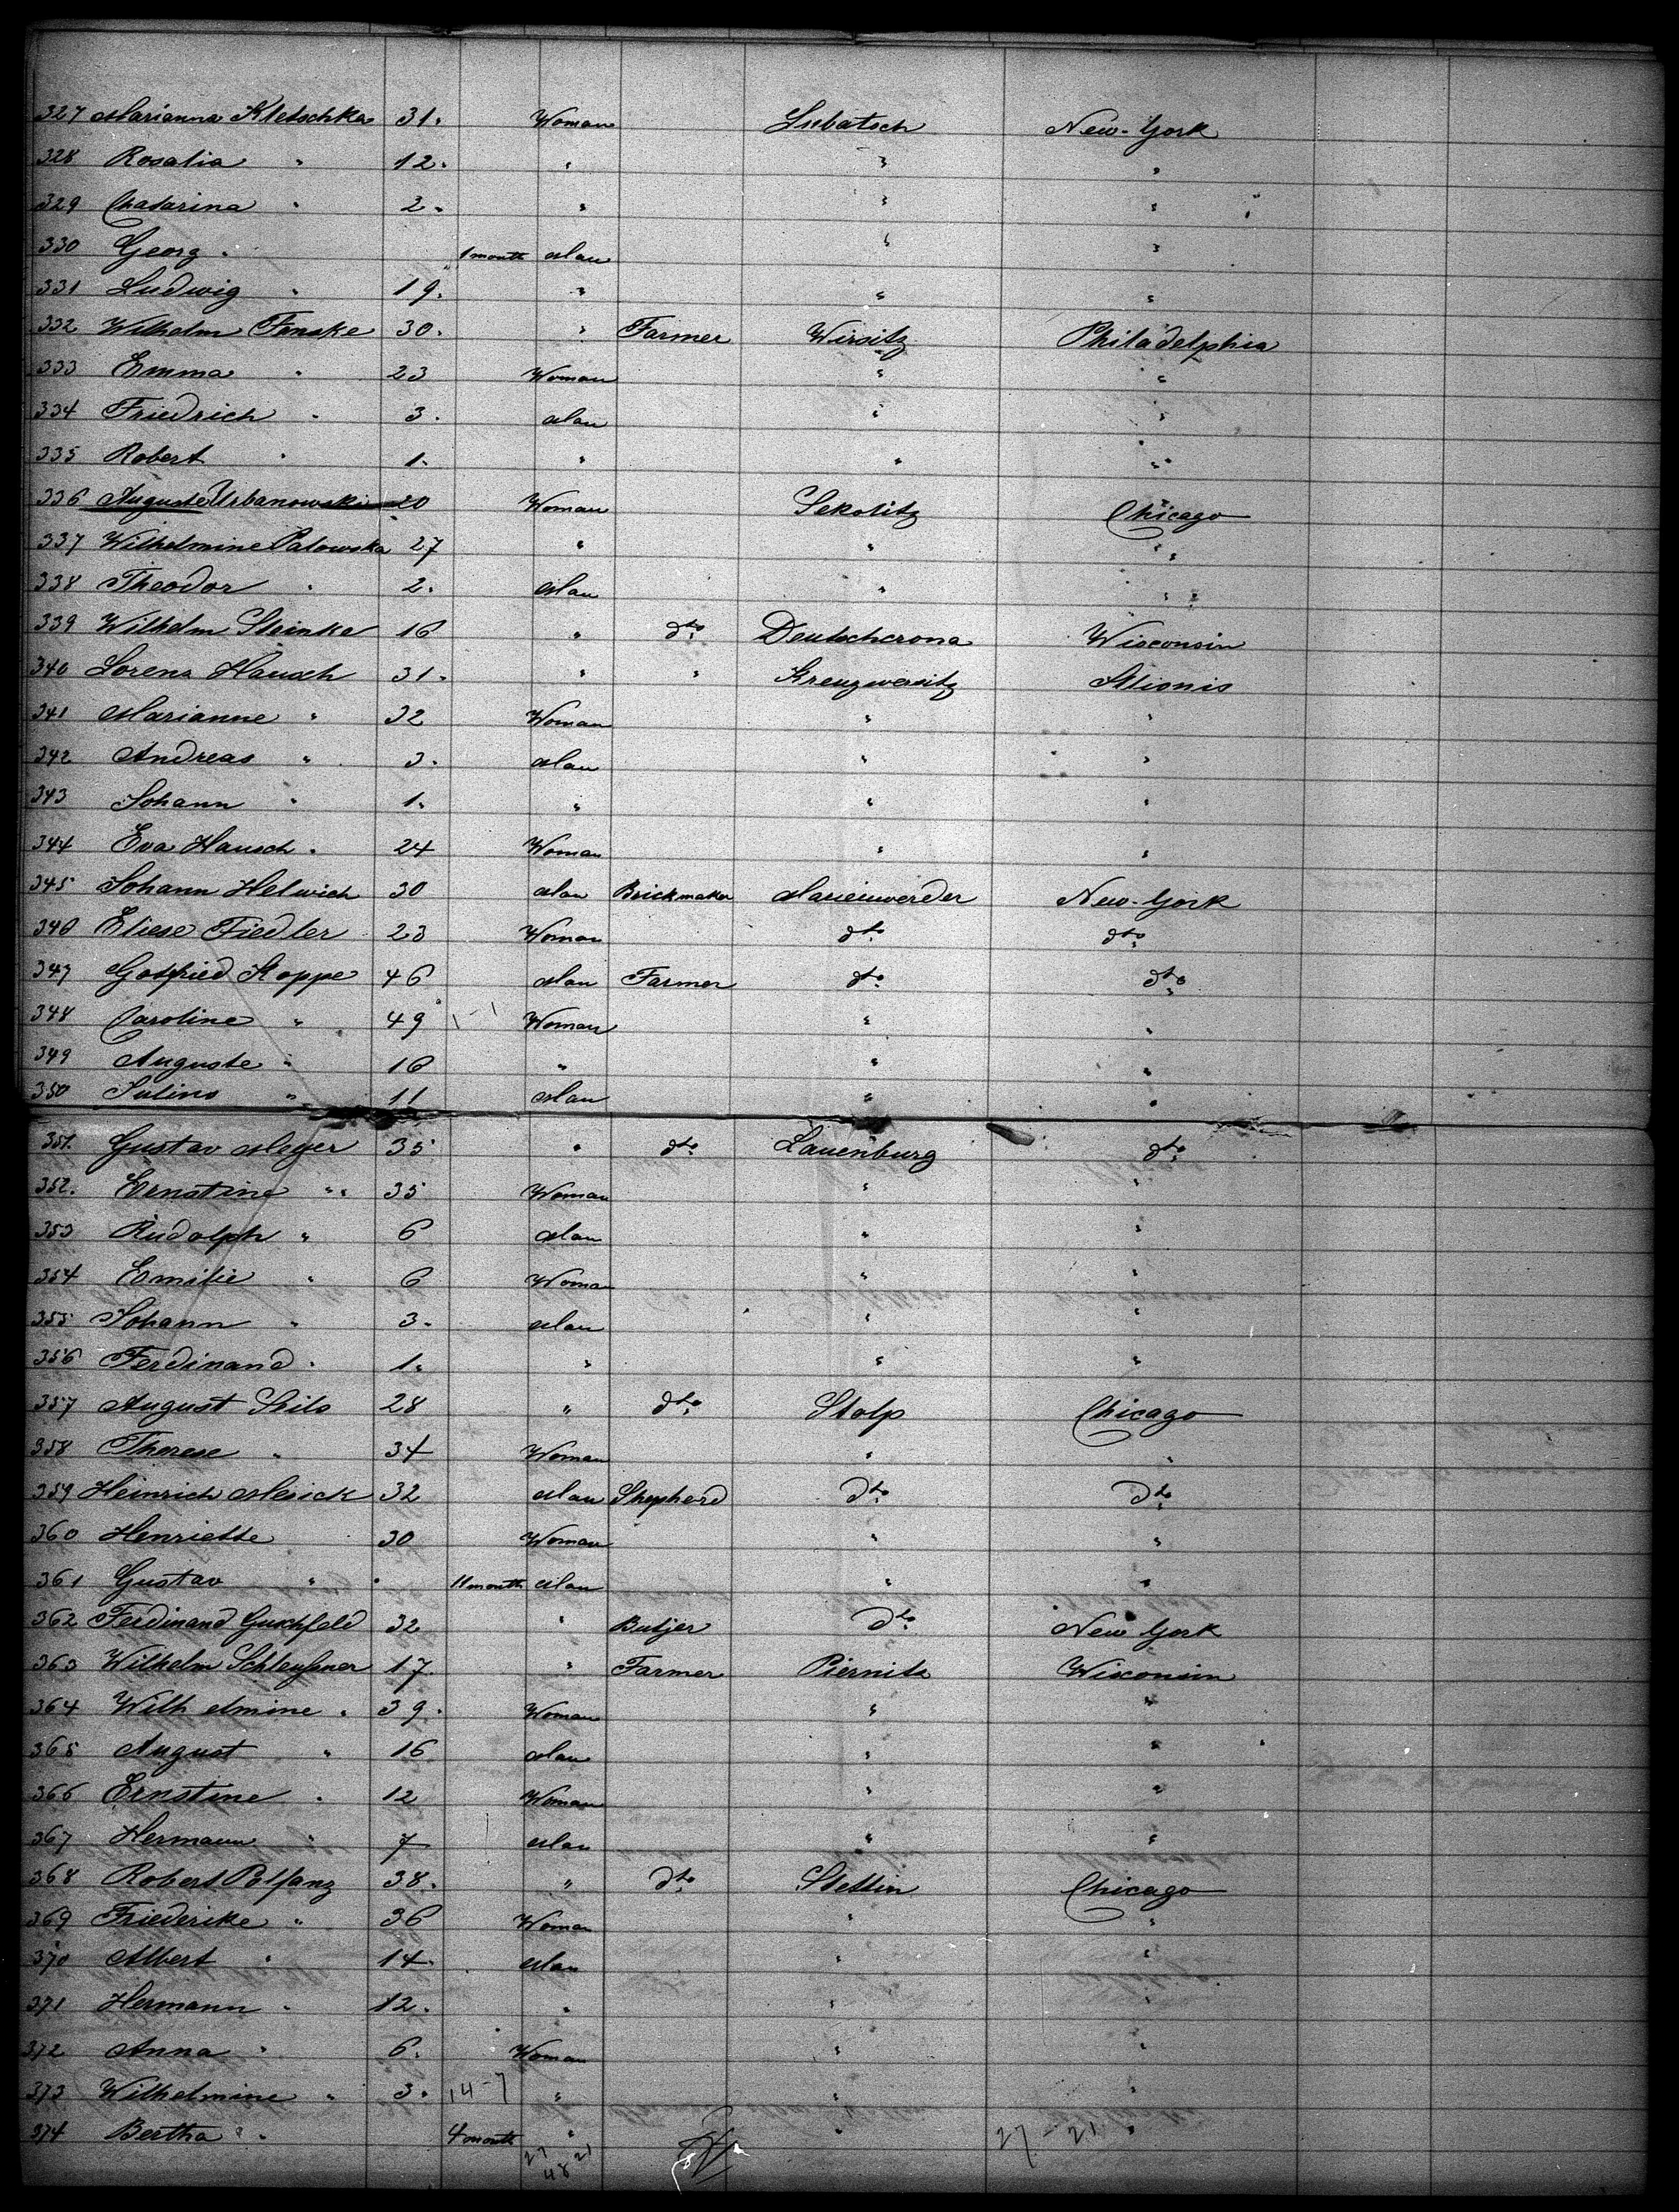 327 Marianna Kletschka 31. Woman Lubatsch New-York
328 Rosalia " 12. " " "
329 Chatarina " 2. " " "
330 Georg " 1 month Man " "
331 Ludwig " 19. " " "
332 Wilhelm Fenske 30. " Farmer Wirsitz Philadelphia
333 Emma " 23 Woman " "
334 Friedrich " 3. Man " "
335 Robert " 1. " " "
336 Auguste Urbanowski 20 Woman Sekolitz Chicago
337 Wilhelmine Palowska 27 " " "
338 Theodor " 2. Man " "
339 Wilhelm Steinke 16 " dto. Deutschcrona Wisconsin
340 Lorenz Hausch 31. " " Kreuzwersitz Illionis
341 Marianne " 32 Woman " "
342 Andreas " 3. Man " "
343 Johann " 1. " " "
344 Eva Hausch. 24 Woman " "
345 Johann Helwich 30 Man Brickmaker Marienwerder New-York
346 Eliese Fiedler 23 Woman dto. dto.
347 Gotfried Koppe 46 Man Farmer dto. dto.
348 Caroline " 49 1-1 Woman " "
349 Auguste " 16 " " "
350 Julius " 11 Man " "
351. Gustav Meyer 35 " dto. Lauenburg dto.
352. Ernstine " 35 Woman " "
353 Rudolph " 6 Man " "
354 Emilie " 6 Woman " "
355 Johann " 3. Man " "
356 Ferdinand " 1. " " "
357 August Stils 28 " dto. Stolp Chicago
358 Therese " 34 Woman " "
359 Heinrich Mesick 32 Man Shepherd dto. dto.
360 Henriette 30 Woman " "
361 Gustav " 11 month Man " "
362 Ferdinand Guschfeld 32 " Butjer dto. New York
363 Wilhelm Schleußener 17. " Farmer Piernitz Wisconsin
364 Wilhelmine " 39. Woman " "
365 August " 16 Man " "
366 Ernstine " 12 Woman " "
367 Hermann " 7 Man " "
368 Robert Polfanz 38. " dto. Stettin Chicago
369 Friederike " 36 Woman " "
370 Albert " 14. Man " "
371 Hermann " 12. " " "
372 Anna " 6. Woman " "
373 Wilhelmine " 3. 14-7 " " "
374 Bertha " 4 month " " 27-21 "
27 21
48